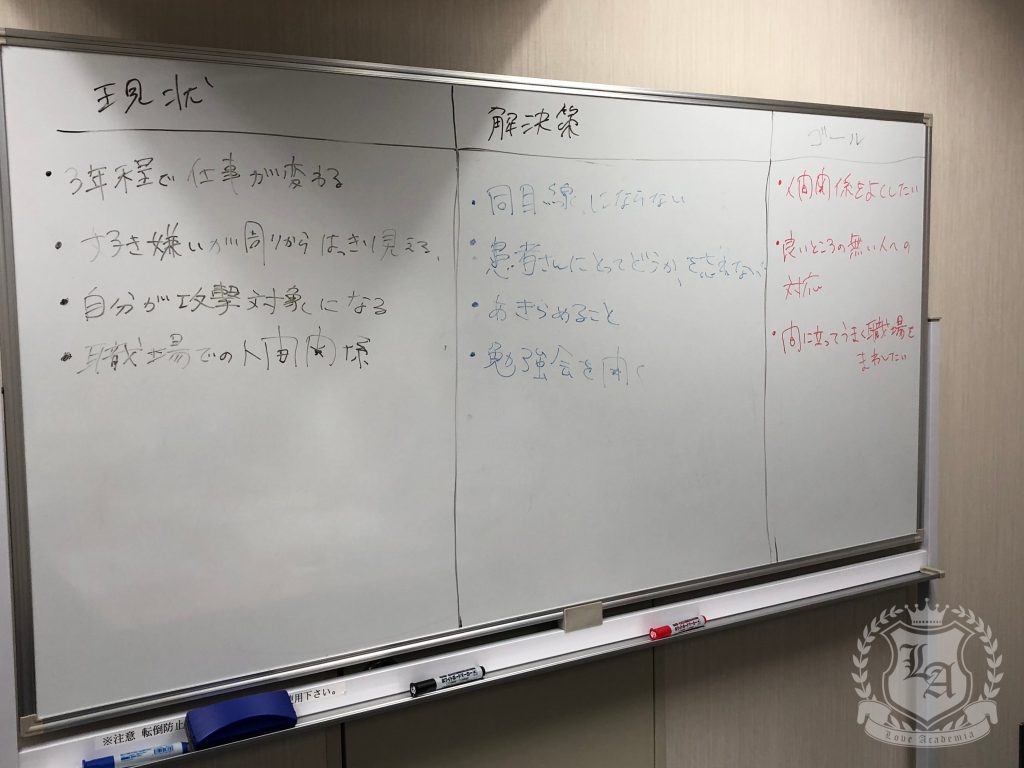 現状
・3年程で仕事が変わる
・好き嫌いが周りからはっきり見える、
・自分が攻撃対象になる
・職場での人間関係
解決策
・同目線にならない
・患者さんにとってどうか、を忘れない
・あきらめること
・勉強会を開く
ゴール
・人間関係をよくしたい
・良いところの無い人への
対応
・間に立ってうまく職場を
まわしたい
用下さい。
※注意 転倒防止
LA
Love Academia